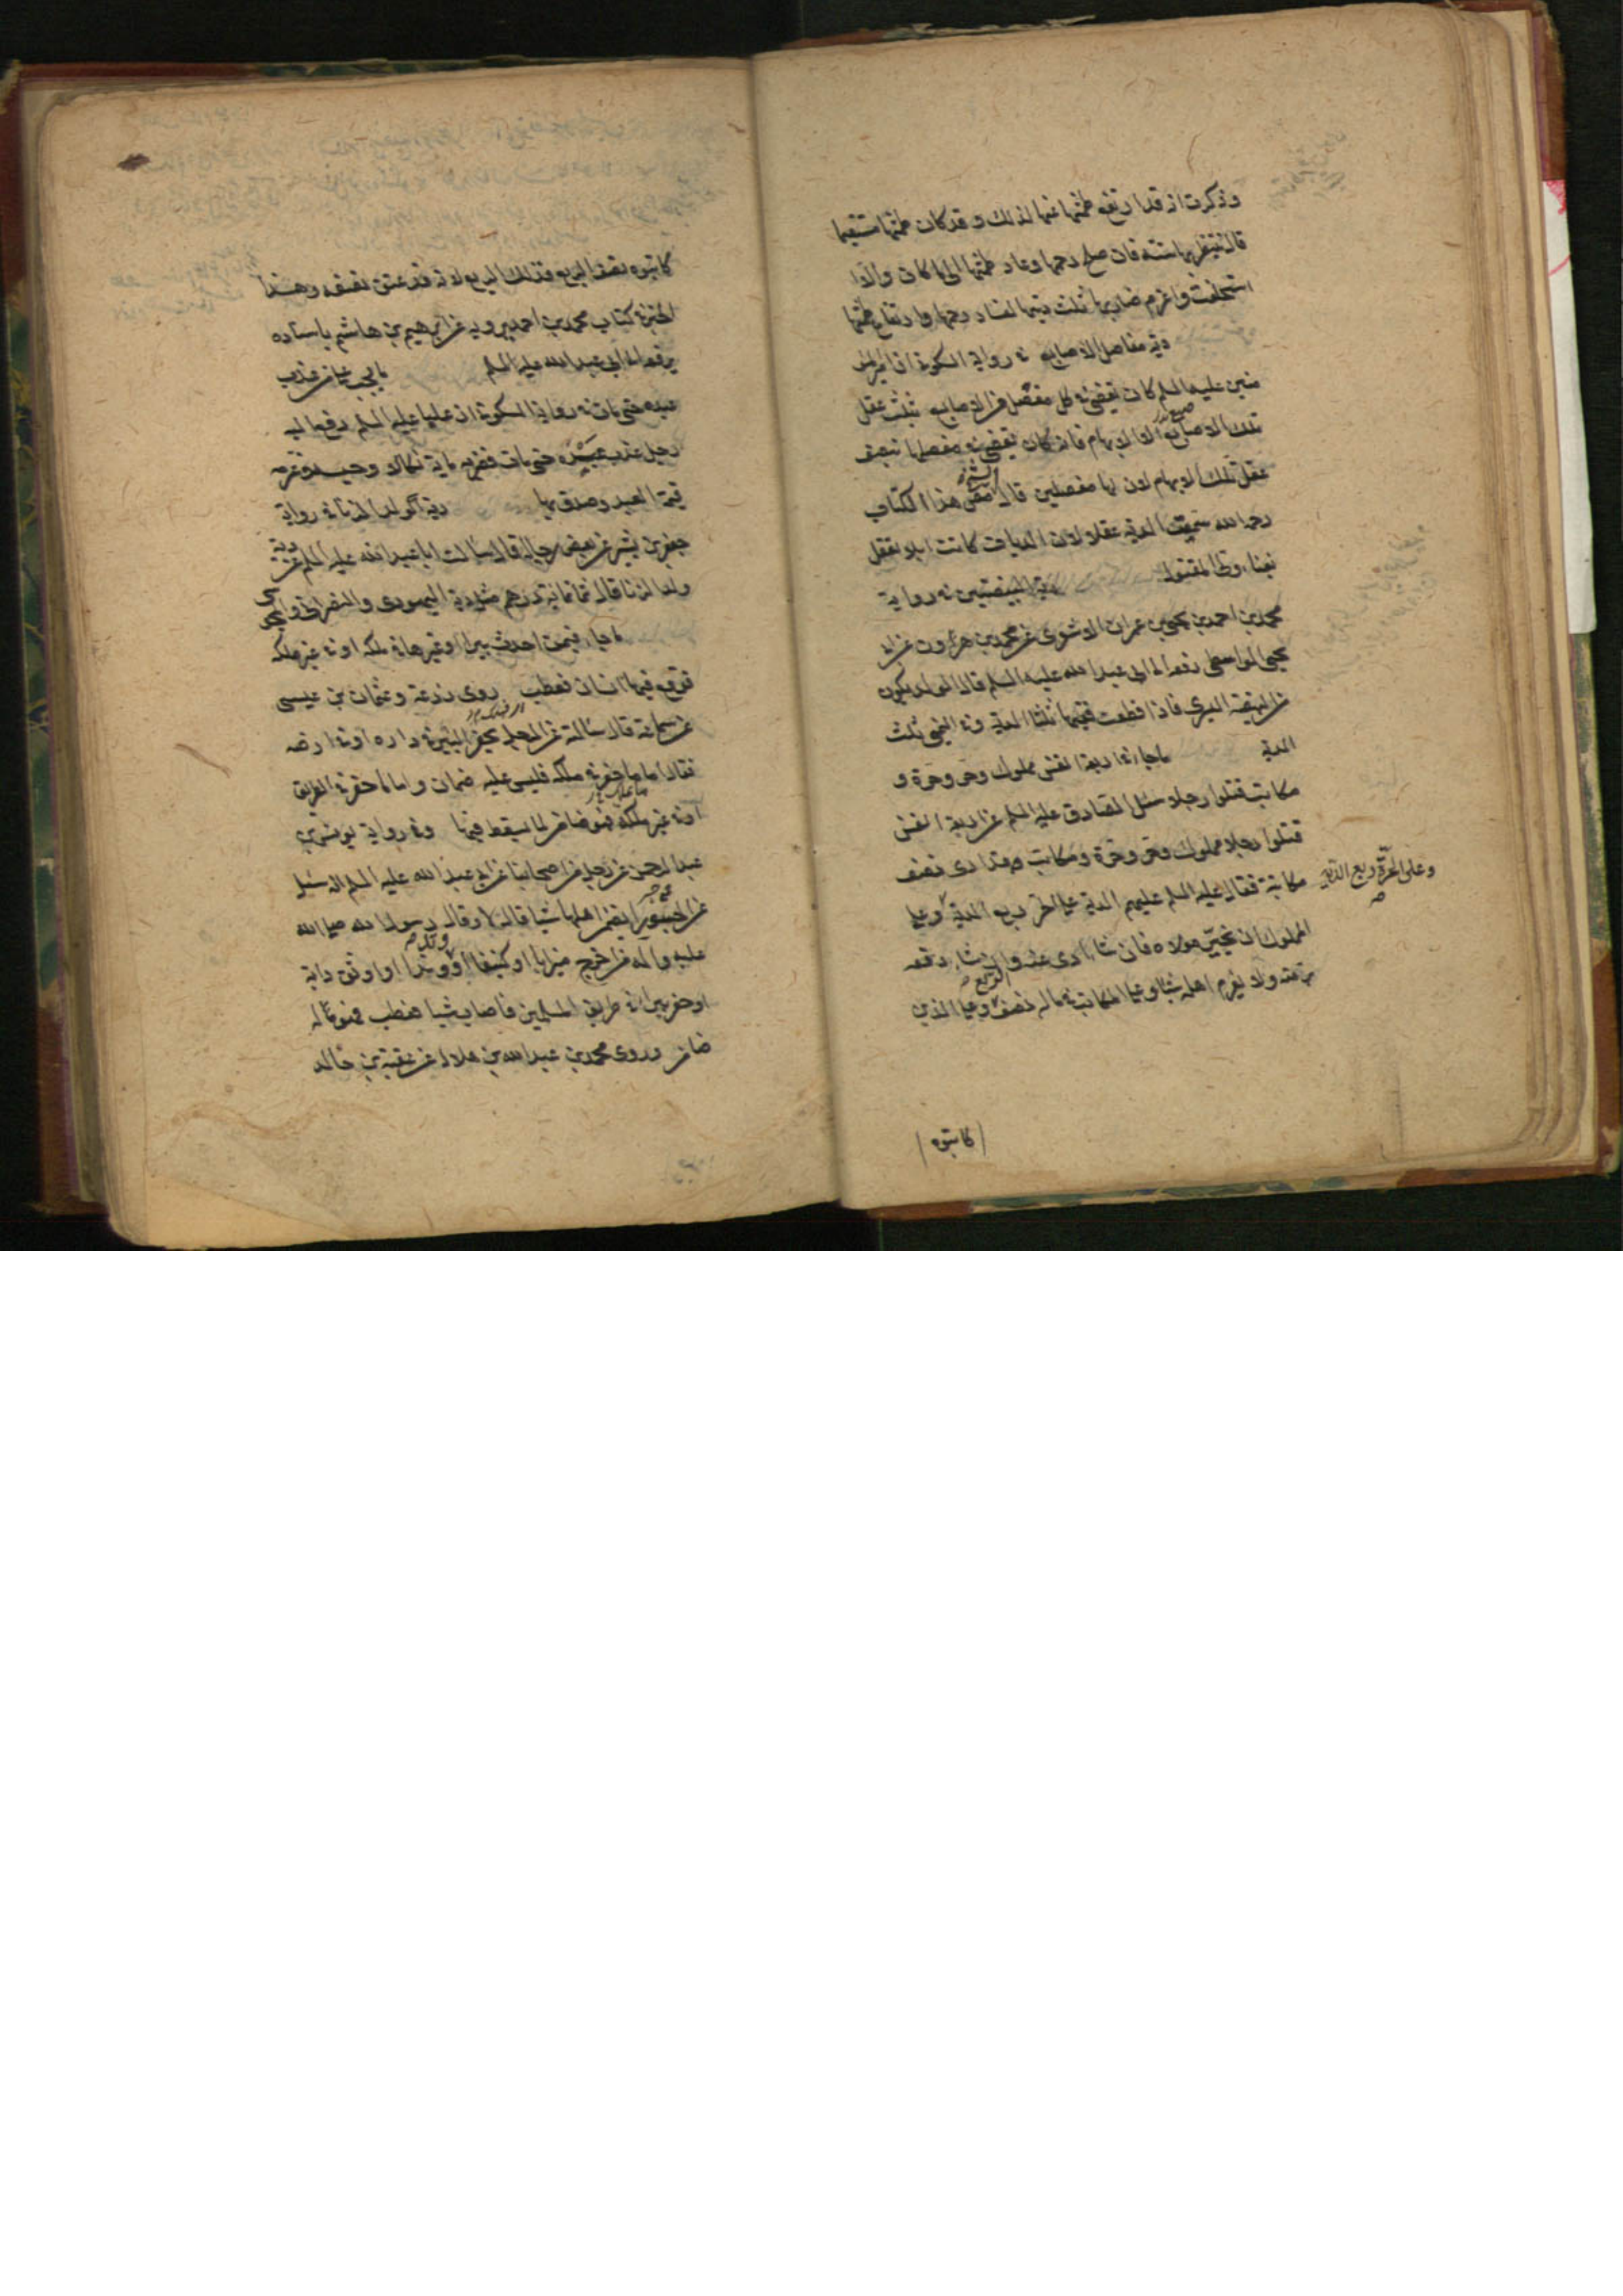 وذكرت انه قد ارتفع طمثها عنها لذلك وقد كان طمثها مستقيما
قال ينتظر بها سنة فان صلح رحمها وعاد طمثها الى ما كان والا
استحلفت واغرم ضاربها ثلث ديتها لفساد رحمها وارتفاع طمثها
دية مفاصل الاصابع في رواية السكوني ان امير المؤ
منين عليه السلم كان يقضي في كل مفصل من الاصابع بثلث عقل
تلك الاصابع الا الابهام فانه كان يقضي في مفصلها بنصف
عقل تلك الابهام لان لها مفصلين قال مصنف هذا الكتاب
رحمه الله سميت الدية عقلا لان الديات كانت ابلا تعقل
بفناء ولي المقتول دية البيضتين في رواية
محمد بن احمد بن يحيى بن عمران الاشعرى عن محمد بن هرون عن ابى
يحيى الواسطى رفعه الى ابى عبد الله عليه السلم قال الولد يكون
من البيضة اليسرى فاذا قطعت ففيها ثلثا الدية وفي اليمنى ثلث
الدية ما جاء في اربعة انفس مملوك وحر وحرة و
مكاتب قتلوا رجلا سئل الصادق عليه السلم عن اربعة انفس
قتلوا رجلا مملوك وحر وحرة ومكاتب وقد ادى نصف
مكاتبته فقال عليه السلم عليهم الدية على الحر ربع الدية وعلى
وعلى الحرة ربع الدية صح
المملوك ان يخير مولاه فان شاء ادى عنه وان شاء دفعه
برمته ولا يغرم اهله شيئا وعلى المكاتب في ماله نصف الربع وعلى الذين
كاتبوه
كاتبوه نصف الربع فذلك الربع لانه قد عتق نصفه وهذا
الخبر في كتاب محمد بن احمد يرويه عن ابرهيم بن هاشم باسناده
يرفعه الى ابى عبد الله عليه السلم ما يجب على من عذب
عبده حتى مات في رواية السكوني ان عليا عليه السلم رفع اليه
رجل عذب عبده حتى مات فضربه ماية نكالا وحبسه وغرمه
قيمة العبد وصدق بها دية ولد الزنا في رواية
جعفر بن بشير عن بعض رجاله قال سالت ابا عبد الله عليه السلم عن دية
ولد الزنا قال ثمانمائة درهم مثل دية اليهودى والنصرانى والمجوسى
ما جاء فيمن احدث بيرا او غيرها في ملكه او في غير ملكه
فوقع فيها انسان فعطب روى زرعة وعثمان بن عيسى
عن سماعة قال سالته عن الرجل يحفر البئر في داره او في ارضه
فقال اما ما حفر في ملكه فليس عليه ضمان واما ما حفر في الطريق
او في غير ملكه فهو ضامن لما يسقط فيها وفي رواية يونس بن
عبد الرحمن عن رجل من اصحابنا عن ابى عبد الله عليه السلم انه سئل
عن الجسور ايضمن اهلها شيئا قال لا وقال رسول الله صلى الله
عليه واله من اخرج ميزابا او كنيفا او وتدا او اوثق دابة
او حفر بيرا في طريق المسلمين فاصاب شيئا فعطب فهو له
ضامن وروى محمد بن عبد الله بن هلال عن عقبة بن خالد